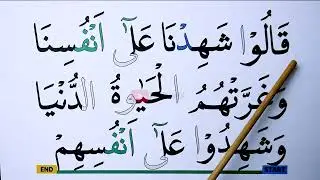 قَالُوْا شَهِدْنَا عَلٰٓى اَنْفُسِنَا
وَغَرَّتْهُمُ الْحَيٰوةُ الدُّنْيَا
وَشَهِدُوْا عَلٰٓى اَنْفُسِهِمْ
END START